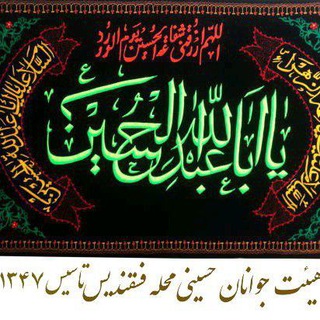 اللهم ارزقنی شفاعة الحسین یوم الورود
یا اباعبدالله الحسین ع
السلام علیک یا اباعبدالله الحسین
هیئت جوانان حسینی محله فسقندیس تاسیس ۱۳۴۷